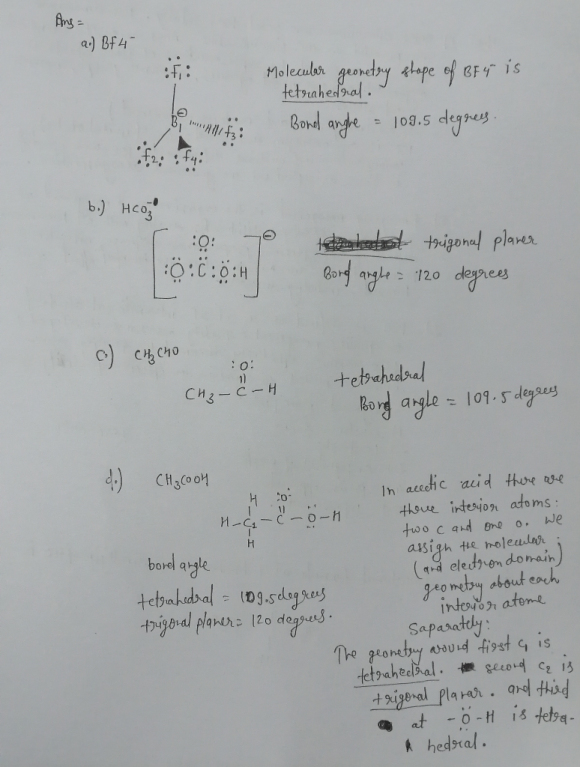 Ans =
a.) BF4⁻
:F1:
B1⊖
F3:
:F2: :F4:
Molecular geometry shape of BF4⁻ is
tetrahedral.
Bond angle = 109.5 degrees.
b.) HCO3⁻
:O:
:O:C:O:H
⊖
trigonal planer
Bond angle = 120 degrees
c.) CH3CHO
:O:
||
CH3 – C – H
tetrahedral
Bond angle = 109.5 degrees
d.) CH3COOH
H :O:
| ||
H – C2 – C – O – H
|
H
bond angle
tetrahedral = 109.5 degrees
trigonal planer = 120 degrees.
In acetic acid there are
three interior atoms:
two C and one O. We
assign the molecular
(and electron domain)
geometry about each
interior atome
Saparately:
The geometry around first C1 is
tetrahedral. second C2 is
trigonal planar. and third
at –O–H is tetra-
hedral.